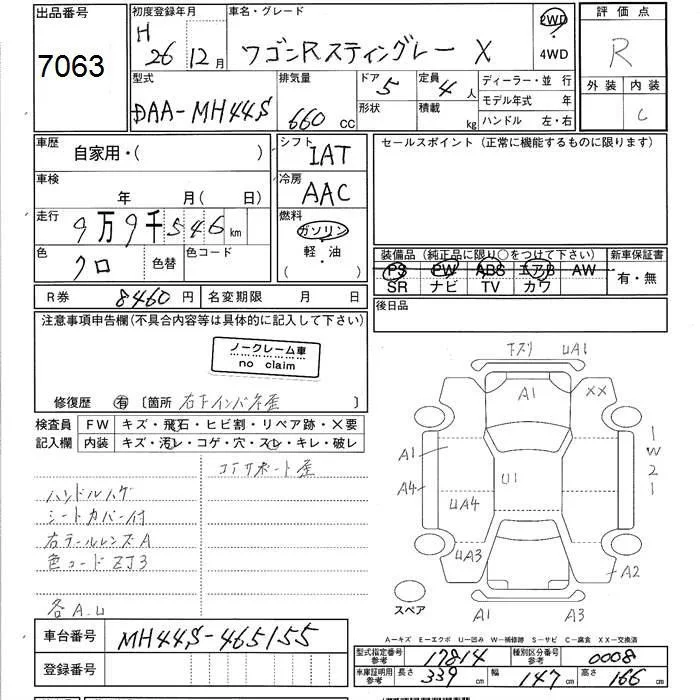 出品番号
7063
初度登録年月
H 26年 12月
車名・グレード
ワゴンRスティングレー X
2WD
4WD
評価点
R
外装
内装
C
型式
DAA-MH44S
排気量
660 cc
ドア
5
形状
定員
4人
積載
kg
ディーラー・並行
モデル年式 年
ハンドル 左・右
車歴
自家用・( )
車検
年 月( 日)
走行
9万9千546 km
色
クロ
色替
色コード
シフト
IAT
冷房
AAC
燃料
ガソリン
軽・油
( )
セールスポイント (正常に機能するものに限ります)
装備品 (純正品に限り○をつけて下さい)
新車保証書
PS PW ABS エアB AW
SR ナビ TV カワ
有・無
R券 8460円
名変期限 月 日
後日品
注意事項申告欄(不具合内容等は具体的に記入して下さい)
ノークレーム車
no claim
修復歴 有 〔箇所 右下インパネ歪 〕
検査員
記入欄
FW キズ・飛石・ヒビ割・リペア跡・X要
内装 キズ・汚レ・コゲ・穴・スレ・キレ・破レ
コアサポート歪
ハンドルハゲ
シートカバー付
右テールレンズA
色コード ZJ3
各A.U
下ズリ UA1
A1
XX
A1
A4
U1
UA4
UA3
1
W
2
1
A2
スペア
A1
A3
A-キズ E-エクボ U-凹み W-補修跡 S-サビ C-腐食 XX-交換済
車台番号
MH44S-465155
登録番号
型式指定番号
参考
17814
種別区分番号
参考
0008
車庫証明用
参考
長さ 339 cm
幅 147 cm
高さ 166 cm